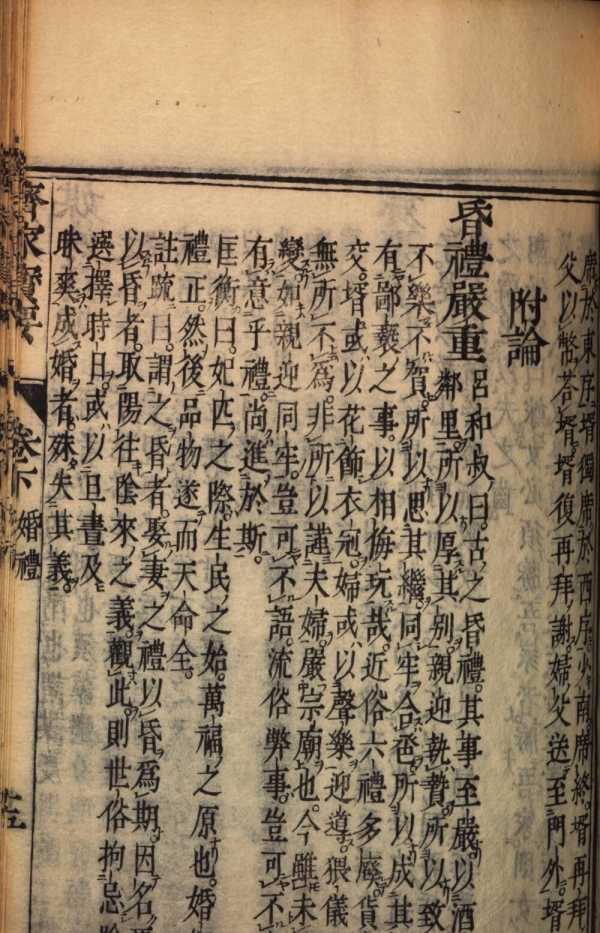 席於東序壻獨席於西序少南席終壻再拜
父以幣荅壻壻復再拜謝婦父送至門外壻
附論
昏禮嚴重呂和叔曰古之昏禮其事至嚴以酒
鄰里所以厚其别親迎執贄所以致
不樂不賀所以思其繼同牢合巹所以成其
有鄙褻之事以相侮玩哉近俗六禮多廢貨
交壻或以花飾衣冠婦或以聲樂迎道猥儀
無所不為非所以謹夫婦嚴宗廟也今雖未
變如親迎同牢豈可不語流俗弊事豈可不
有意乎禮尚進於斯
匡衡曰妃匹之際生民之始萬福之原也婚
禮正然後品物遂而天命全
註䟽曰謂之昏者娶妻之禮以昏為期因名
以昏者取陽往陰來之義觀此則世俗拘忌
選擇時日或以旦晝及
昧爽成婚者殊失其義
齊家寶要 卷下 婚禮